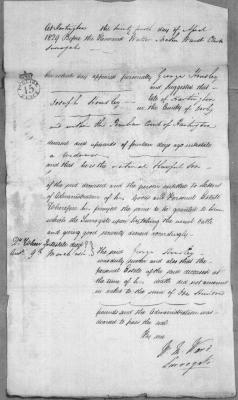 At Hartington the twenty day of April
1829 Before the Reverend Walter Ward Clerk
Surrogate
On which day appeared personally George
and suggested that
Joseph late of Hartington
in the County of Derby
and within the Peculiar Court of Hartington
deceased and upwards of fourteen days ago intestate
a Widower
and that he is the natural lawful Son
of the said deceased and the person entitled to Letters
of Administration of his Goods and Personal Estate
Wherefore he prayed the same to be granted to him
whom the Surrogate upon his taking the usual Oath
and giving good security decreed accordingly.
Intestate died
9th March
The said George
was duly sworn and also that the
personal Estate of the said deceased at
the time of his death did not amount
in value to the sum of Hundred
pounds and the Administration was
decreed to pass the seal
Before me
Ward
Surrogate